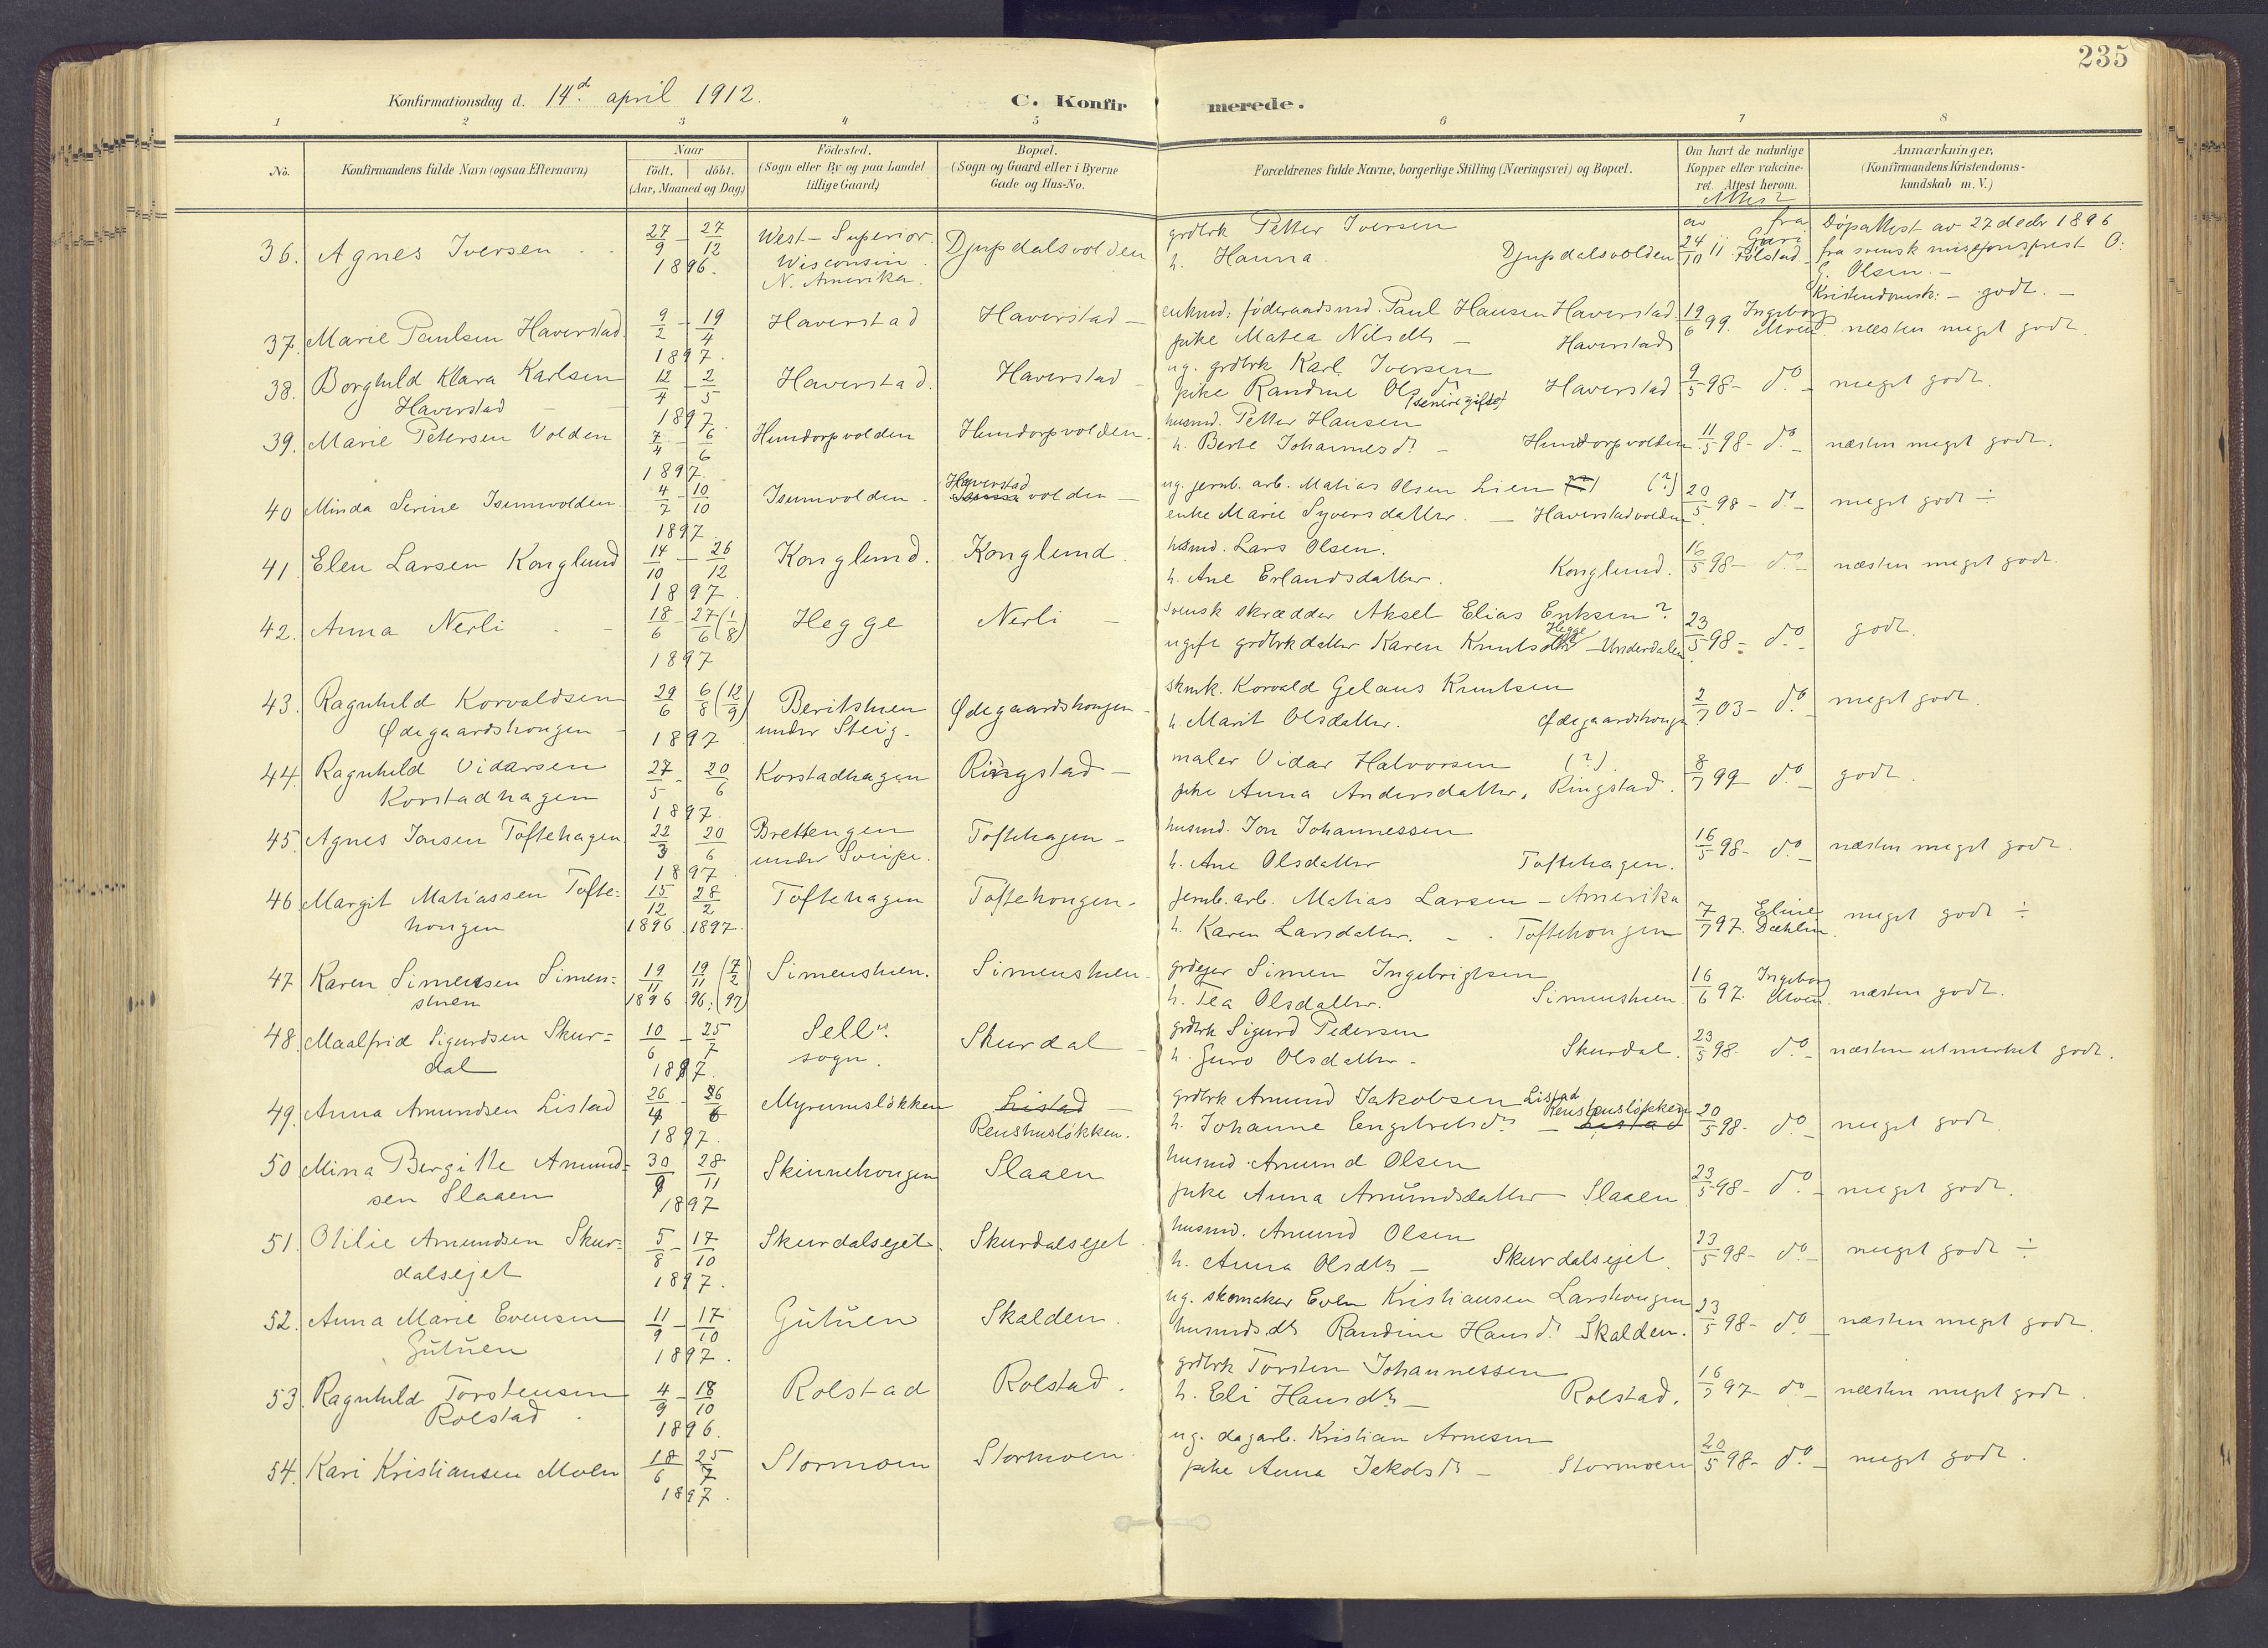 235
Konfirmationsdag d. 14d. april 1912.
C. Konfirmerede.
1 2 3 4 5 6 7 8
No.
Konfirmandens fulde Navn (ogsaa Efternavn)
Naar
födt. döbt.
(Aar, Maaned og Dag)
Födested.
(Sogn eller By og paa Landet
tillige Gaard)
Bopæl.
(Sogn og Gaard eller i Byerne
Gade og Hus-No.
Forældrenes fulde Navne, borgerlige Stilling (Næringsvei) og Bopæl.
Om havt de naturlige
Kopper eller vakcine-
ret. Attest herom.
Anmærkninger.
(Konfirmandens Kristendoms-
kundskab m. V.)
36. Agnes Iversen 27/9 - 27/12 1896. West-Superior. Wisconsin. N. Amerika. Djupdalsvolden
grdbrk Petter Iversen
h. Hanna. Djupdalsvolden
av 24/10 11 fra Guri Folstad
Döpattest av 27 decbr 1896
fra svensk misjonsprest O.
G. Olsen. -
Kristendomsk: - godt. -
37. Marie Paulsen Haverstad 9/2 - 19/4 1897. Haverstad Haverstad -
enkmd: föderaadsmd. Paul Hansen Haverstad
pike Matea Nilsdtr - Haverstad
19/6 99. Ingeborg Moen. næsten meget godt.
38. Borghild Klara Karlsen
Haverstad - 12/4 - 2/5 1897. Haverstad. Haverstad -
ug. grdbrk Karl Iversen
pike Randine Olsdtr (senere gifte) Haverstad
9/5 98 - do - meget godt.
39. Marie Petersen Volden 7/4 - 6/6 1897. Hundorpvolden Hundorpvolden.
husmd. Petter Hansen
h. Berte Johannesdr - Hundorpvolden
11/5 98 - do - næsten meget godt.
40 Minda Serine Isumvolden. 4/7 - 10/10 1897. Isumvolden. Haverstadvolden -
ug. jernb. arb. Matias Olsen Lien (?)
enke Marie Syversdatter. - Haverstadvolden.
20/5 98 - do - meget godt ÷
41. Elen Larsen Konglund 14/10 - 26/12 1897. Konglund. Konglund.
husmd. Lars Olsen.
h. Ane Erlandsdatter. Konglund.
16/5 98 - do - næsten meget godt.
42. Anna Nerli 18/6 - 27/6 (1/8) 1897 Hegge Nerli -
svensk skrædder Aksel Elias Eriksen?
ugift grdbrkdatter Karen Knutsdtr Hegge - Underdalen.
23/5 98 - do - godt.
43. Ragnhild Korvaldsen
Ødegaardshongen - 29/6 6/8 (12/9) 1897 Beritstuen
under Steig. Ødegaardshongen -
skmk. Korvald Gelaus Knutsen
h. Marit Olsdatter. Ødegaardshongen
2/7 03 - do - meget godt.
44. Ragnhild Vidarsen
Korstadhagen 27/5 - 20/6 1897. Korstadhagen Ringstad -
maler Vidar Halvorsen (?).
pike Anna Andersdatter, Ringstad.
8/7 99 do - godt.
45. Agnes Jonsen Toftehagen 22/3 20/6 1897. Brettengen
under Sveipe. Toftehagen -
husmd. Jon Johannessen
h. Ane Olsdatter Toftehagen.
16/5 98 - do - næsten meget godt.
46. Margit Matiassen Tofte=
hongen 15/12 28/2 1896. 1897. Toftehagen Toftehongen.
jernb. arb. Matias Larsen - Amerika
h. Karen Larsdatter. - Toftehongen
7/7 97. Eline Dæhlin. meget godt ÷
47 Karen Simensen Simen=
stuen 19/11 19/11 (7/2) 1896 96. (97) Simenstuen. Simenstuen -
grdejer Simen Ingebrigtsen
h. Tea Olsdatter. Simenstuen.
16/6 97. Ingeborg Moen. næsten godt.
48. Maalfrid Sigurdsen Skur=
dal 10/6 - 25/7 1897. Sells
sogn. Skurdal -
grdbrk Sigurd Pedersen
h. Guro Olsdatter - Skurdal.
23/5 98 - do - næsten utmerket godt.
49. Anna Amundsen Listad 26/4 - 26/6 1897. Myrumsløkken Listad -
Renshusløkken.
grdbrk Amund Jakobsen Listad
h. Johanne Engebretsdr - Renshusløkken Listad
20/5 98 - do - meget godt.
50 Mina Bergitte Amund=
sen Slaaen 30/9 28/11 1897 Skinnehongen Slaaen
husmd. Amund Olsen
pike Anna Amundsdatter - Slaaen
23/5 98 - do - meget godt.
51. Otilie Amundsen Skur=
dalsejet 5/8 - 17/10 1897. Skurdalsejet. Skurdalsejet.
husmd. Amund Olsen
h. Anna Olsdtr - Skurdalsejet.
23/5 98 - do - meget godt ÷
52. Anna Marie Evensen
Gutuen 11/9 - 17/10 1897. Gutuen Skalden.
ug. skomaker Even Kristiansen Larshongen
husmds.dtr Randine Hansdr Skalden.
23/5 98 - do - næsten meget godt.
53. Ragnhild Torstensen
Rolstad. 4/9 - 18/10 1896. Rolstad Rolstad.
grdbrk Torsten Johannessen
h. Eli Hansdtr - Rolstad.
16/7 97 - do - næsten meget godt.
54. Kari Kristiansen Moen 18/6 25/7 1897. Stormoen Stormoen.
ug. dagarb. Kristian Arnesen
pike Anna Jakobsdtr - Stormoen
20/5 98 - do - meget godt.